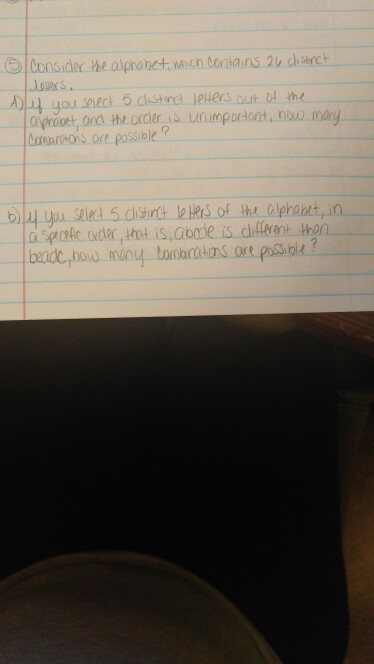 ⑤ Consider the alphabet, which contains 26 distinct
letters.
A) If you select 5 distinct letters out of the
alphabet, and the order is unimportant, how many
combinations are possible?
b) If you select 5 distinct letters of the alphabet, in
a specific order, that is, abcde is different than
beadc, how many combinations are possible?